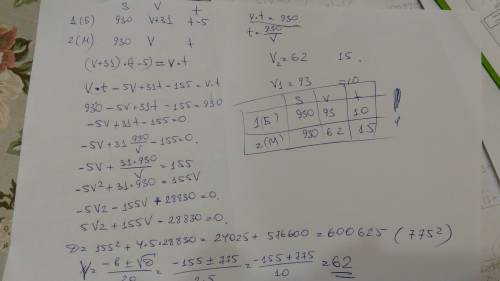 S V t
1(Б) 930 V+31 t-5
2(М) 930 V t
(V+31)·(t-5)=V·t
V·t-5V+31t-155=V.t
930-5V+31t-155=930
-5V+31t-155=0.
-5V+31 930/V -155=0.
-5V+ 31·930/V =155
-5V²+31·930=155V
-5V2-155V+28830=0.
5V2+155V-28830=0.
D=155²+4.5.28830=24025+576600=600625 (775²)
V= -b±√D/2a = -155±775/2.5 = -155+775/10 =62
V.t=930
t=930/V
V2=62 15.
V1=93 10
S V t
1(Б) 930 93 10
2(М) 930 62 15